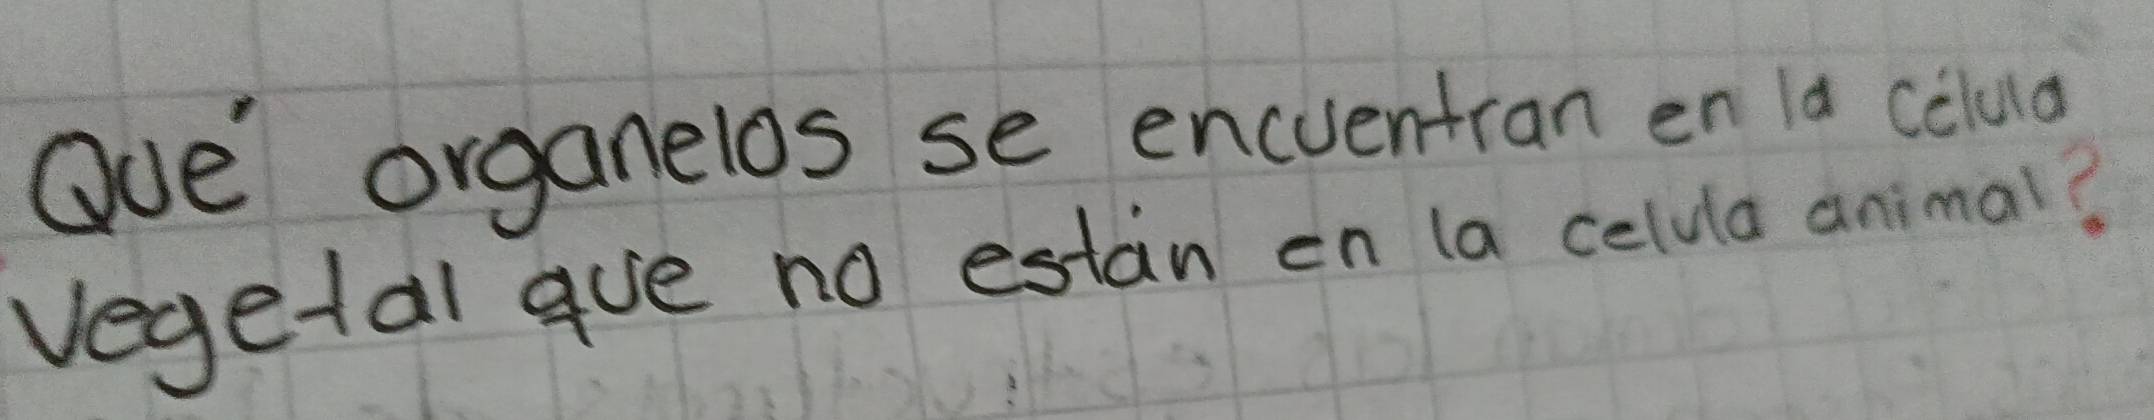 Qué organelos se encuentran en la célula
vegetal que no están en la celula animal?